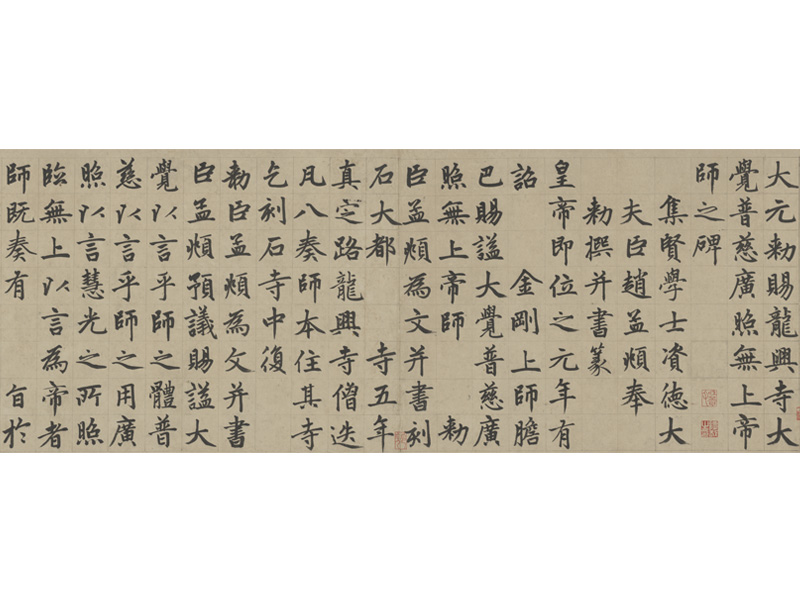 大元勑賜龍興寺大
覺普慈廣照無上帝
師之碑
集賢學士資德大
夫臣趙孟頫奉
勑撰并書篆
皇帝即位之元年有
詔 金剛上師膽
巴賜謚大覺普慈廣
照無上帝師 勑
臣孟頫為文并書刻
石大都 寺五年
真定路龍興寺僧迭
凡八奏師本住其寺
乞刻石寺中復
勑臣孟頫為文并書
臣孟頫預議賜謚大
覺以言乎師之體普
慈以言乎師之用廣
照以言慧光之所照
臨無上以言為帝者
師既奏有 旨於